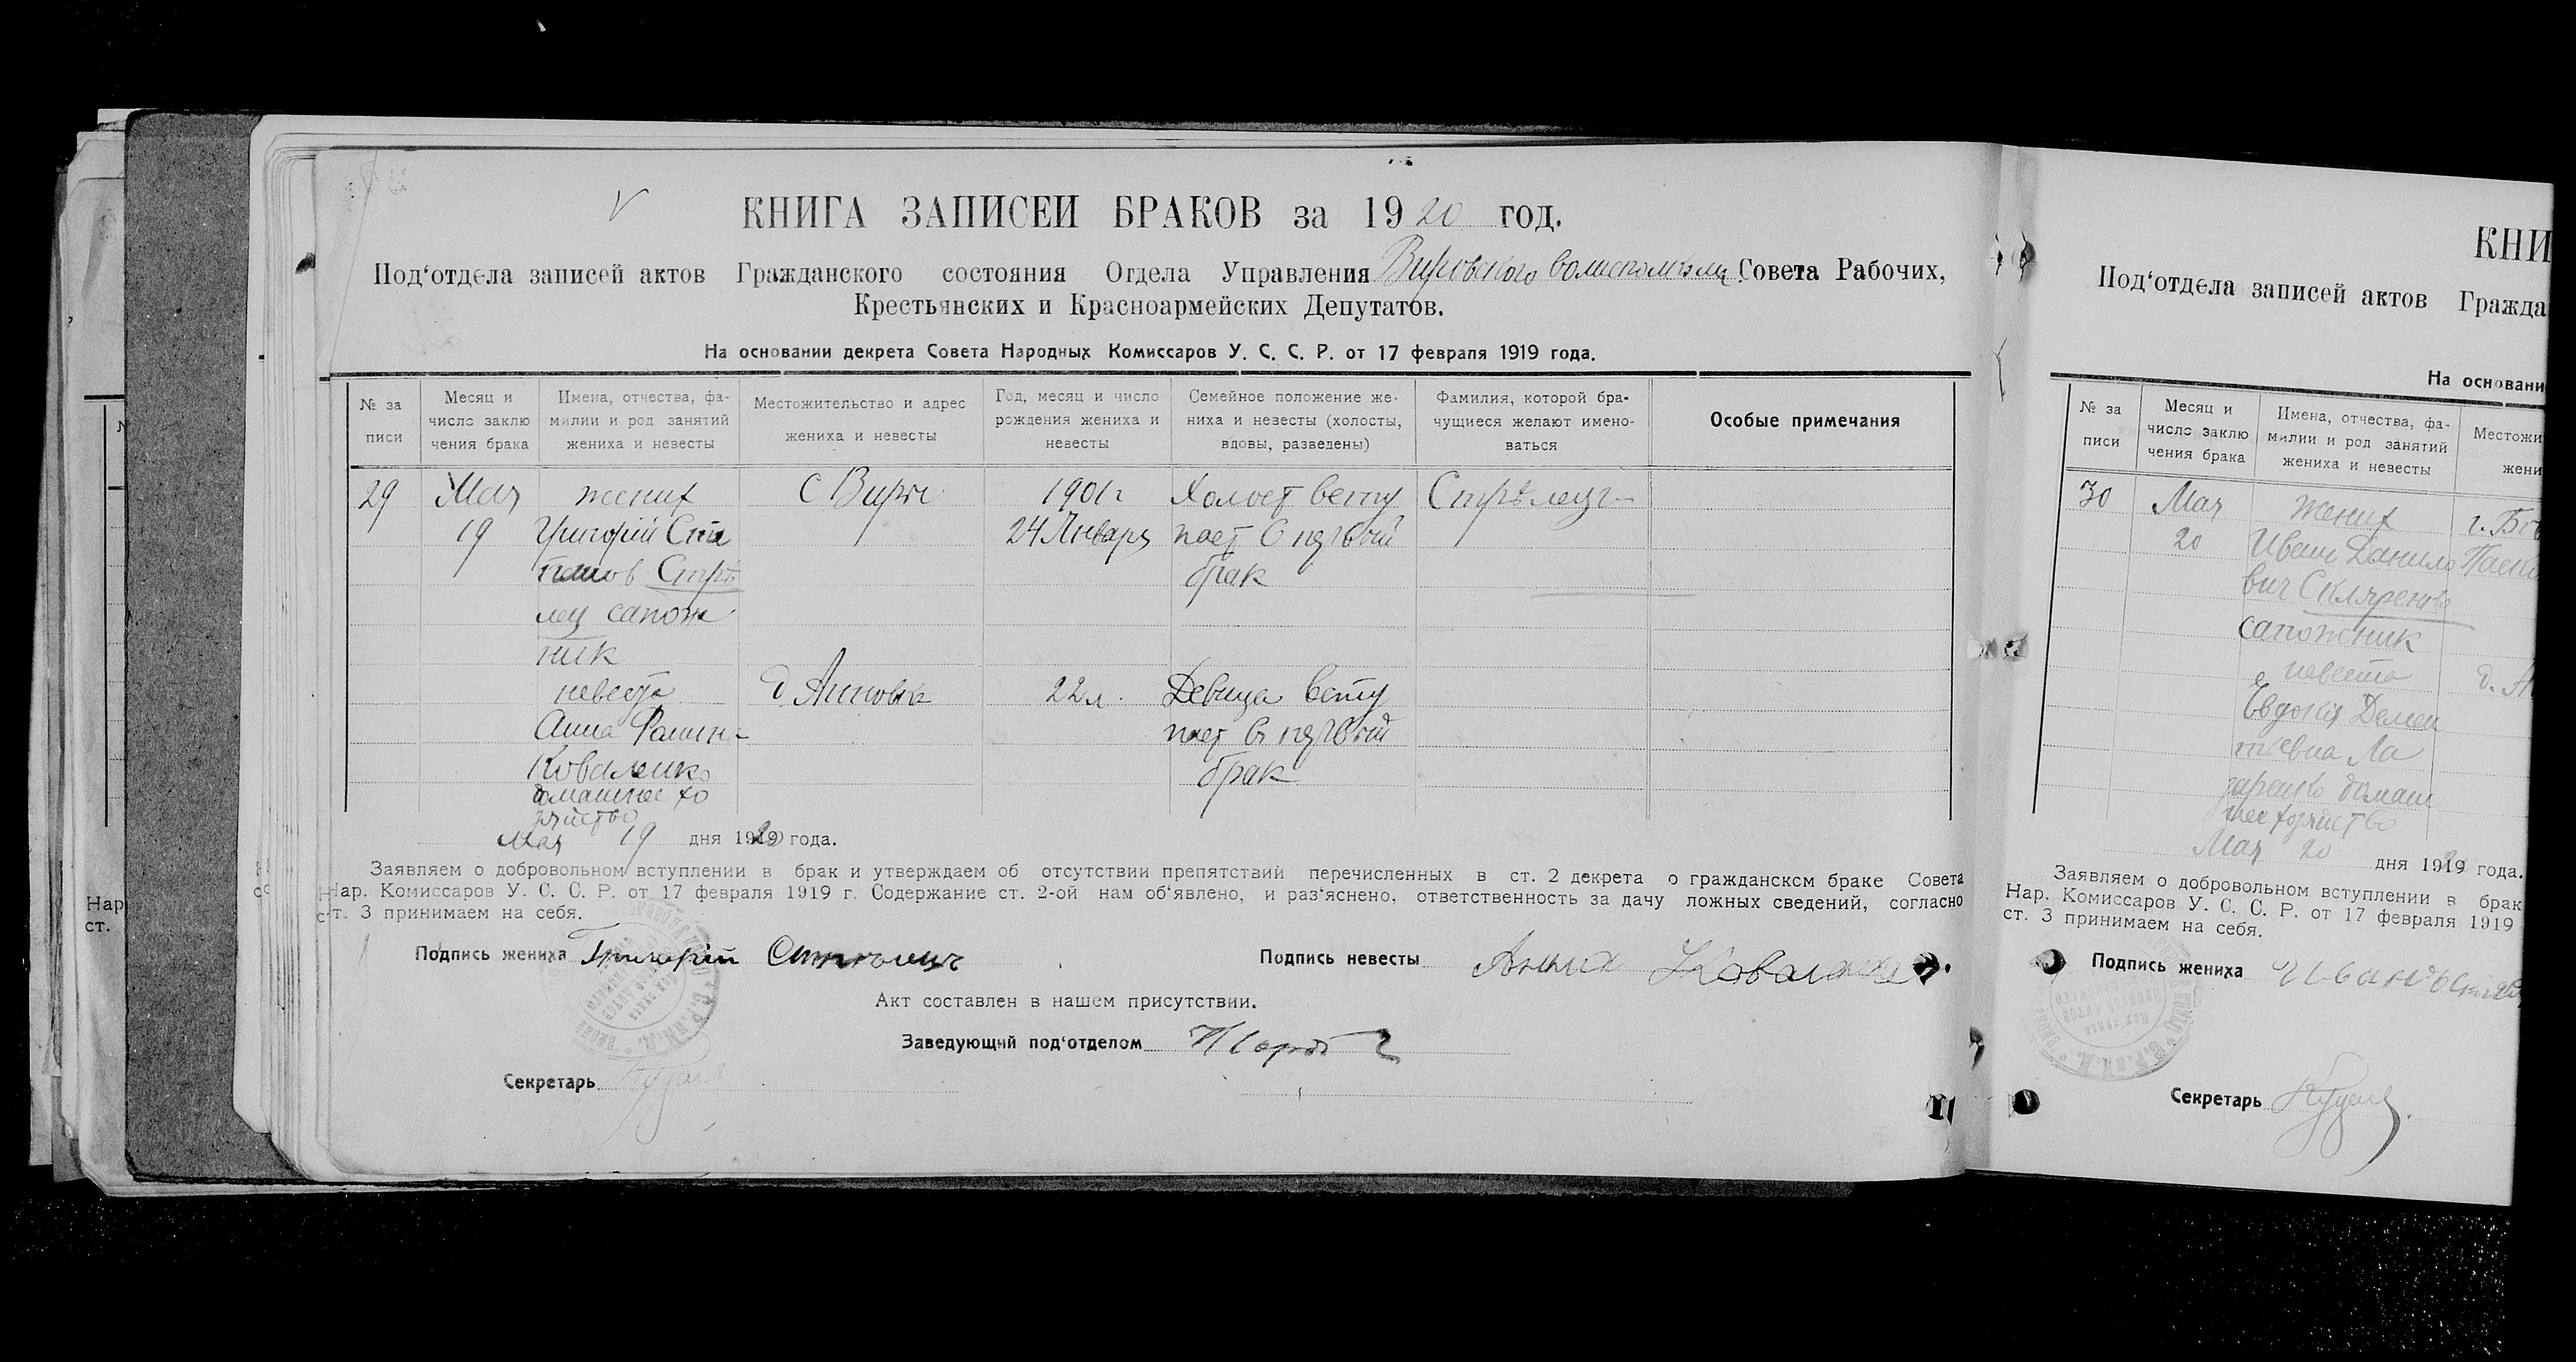 КНИГА ЗАПИСЕЙ БРАКОВ за 1920 год.
Под‘отдела записей актов Гражданского состояния Отдела Управления Вировского Совета Рабочих,
Крестьянских и Красноармейских Депутатов.
На основании декрета Совета Народных Комиссаров У. С. С. Р. от 17 февраля 1919 года.
№ за
писи
Месяц и
число заклю
чения брака
Имена, отчества, фа-
милии и род занятий
жениха и невесты
Местожительство и адрес
жениха и невесты
Год, месяц и число
рождения жениха и
невесты
Семейное положение же-
ниха и невесты (холосты,
вдовы, разведены)
Фамилия, которой бра-
чущиеся желают имено-
ваться
Особые примечания
29
Мая
19
жених
Григорій Сте
панов Стрѣ
лец сапож
ник
с Виры
1901 г
24 Января
Холост всту
пает в первый
брак
Стрѣлец
невеста
Анна
Коваленко
домашнее хо
зяйство
д Анновка
22 л.
Девица всту
пает в первый
брак
Мая 19 дня 1920 года.
Заявляем о добровольном вступлении в брак и утверждаем об отсутствии препятствий перечисленных в ст. 2 декрета о гражданском браке Совета
Нар. Комиссаров У. С. С. Р. от 17 февраля 1919 г. Содержание ст. 2-ой нам об‘явлено, и раз‘яснено, ответственность за дачу ложных сведений, согласно
ст. 3 принимаем на себя.
Подпись жениха Григорій
Подпись невесты Анна Коваленко
Акт составлен в нашем присутствии.
Заведующий под‘отделом
Секретарь
КНИ
Под‘отдела записей актов Гражда
На основани
№ за
писи
Месяц и
число заклю
чения брака
Имена, отчества, фа-
милии и род занятий
жениха и невесты
Местожи
жени
30
Мая
20
жених
Иван Данило
вич Скляренко
сапожник
невеста
Евдокія Демен
тьевна Ла
заренко домаш
нее хозяйство
д. А
Мая 20 дня 1919 года.
Заявляем о добровольном вступлении в брак
Нар. Комиссаров У. С. С. Р. от 17 февраля 1919
ст. 3 принимаем на себя.
Подпись жениха Иван
Секретарь
Нар
ст.